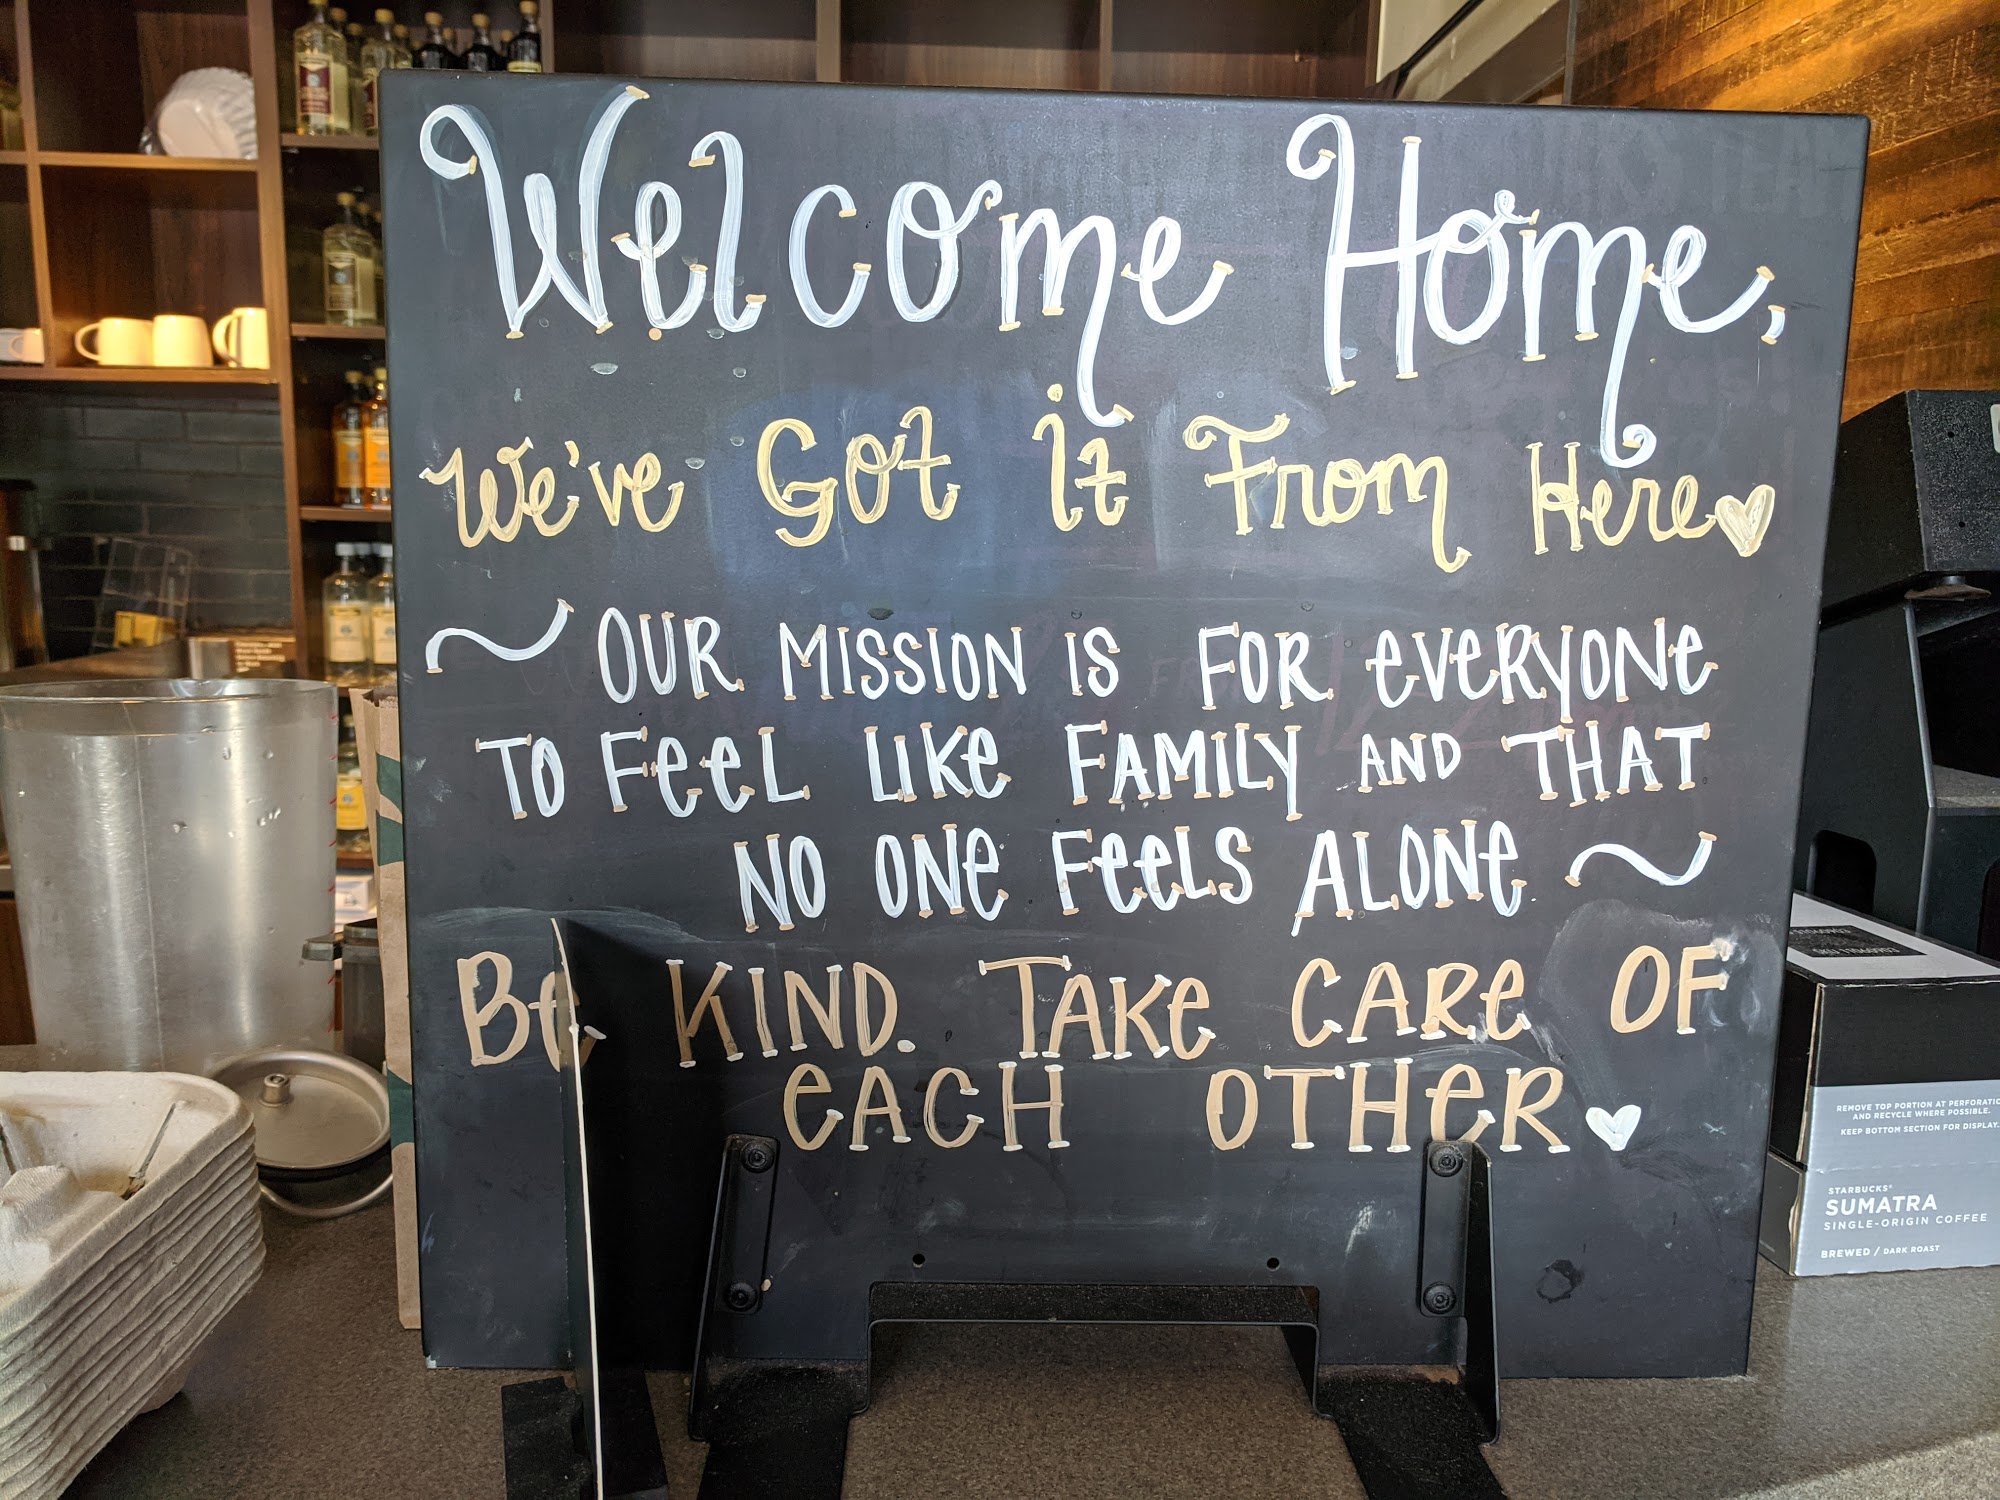 Welcome Home,
We've Got it From Here
OUR MISSION IS FOR EVERYONE
TO FEEL LIKE FAMILY AND THAT
NO ONE FEELS ALONE
Be KIND. TAKE CARE OF
EACH OTHER
REMOVE TOP PORTION AT PERFORATIO
AND RECYCLE WHERE POSSIBLE.
KEEP BOTTOM SECTION FOR DISPLAY.
STARBUCKS®
SUMATRA
SINGLE-ORIGIN COFFEE
BREWED / DARK ROAST